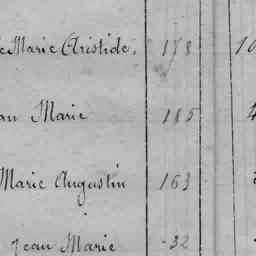 Marie Aristide, 178 10
Marie 185
Marie Augustin 163
Jean Marie 32